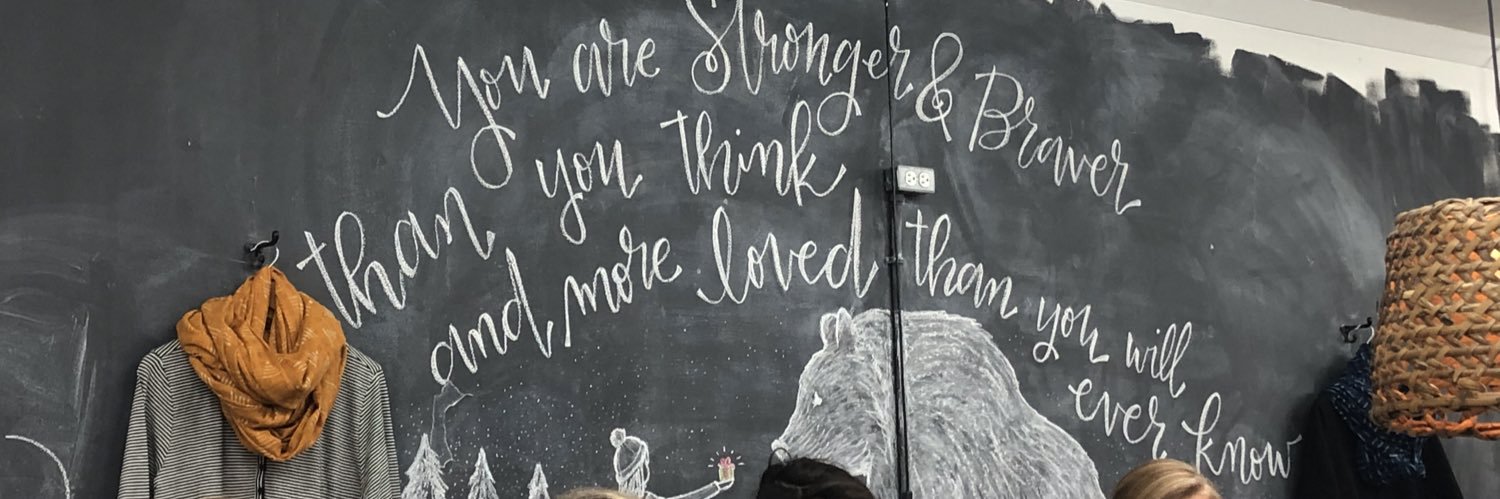 You are Stronger & Braver
than you think
and more loved than you will
ever know